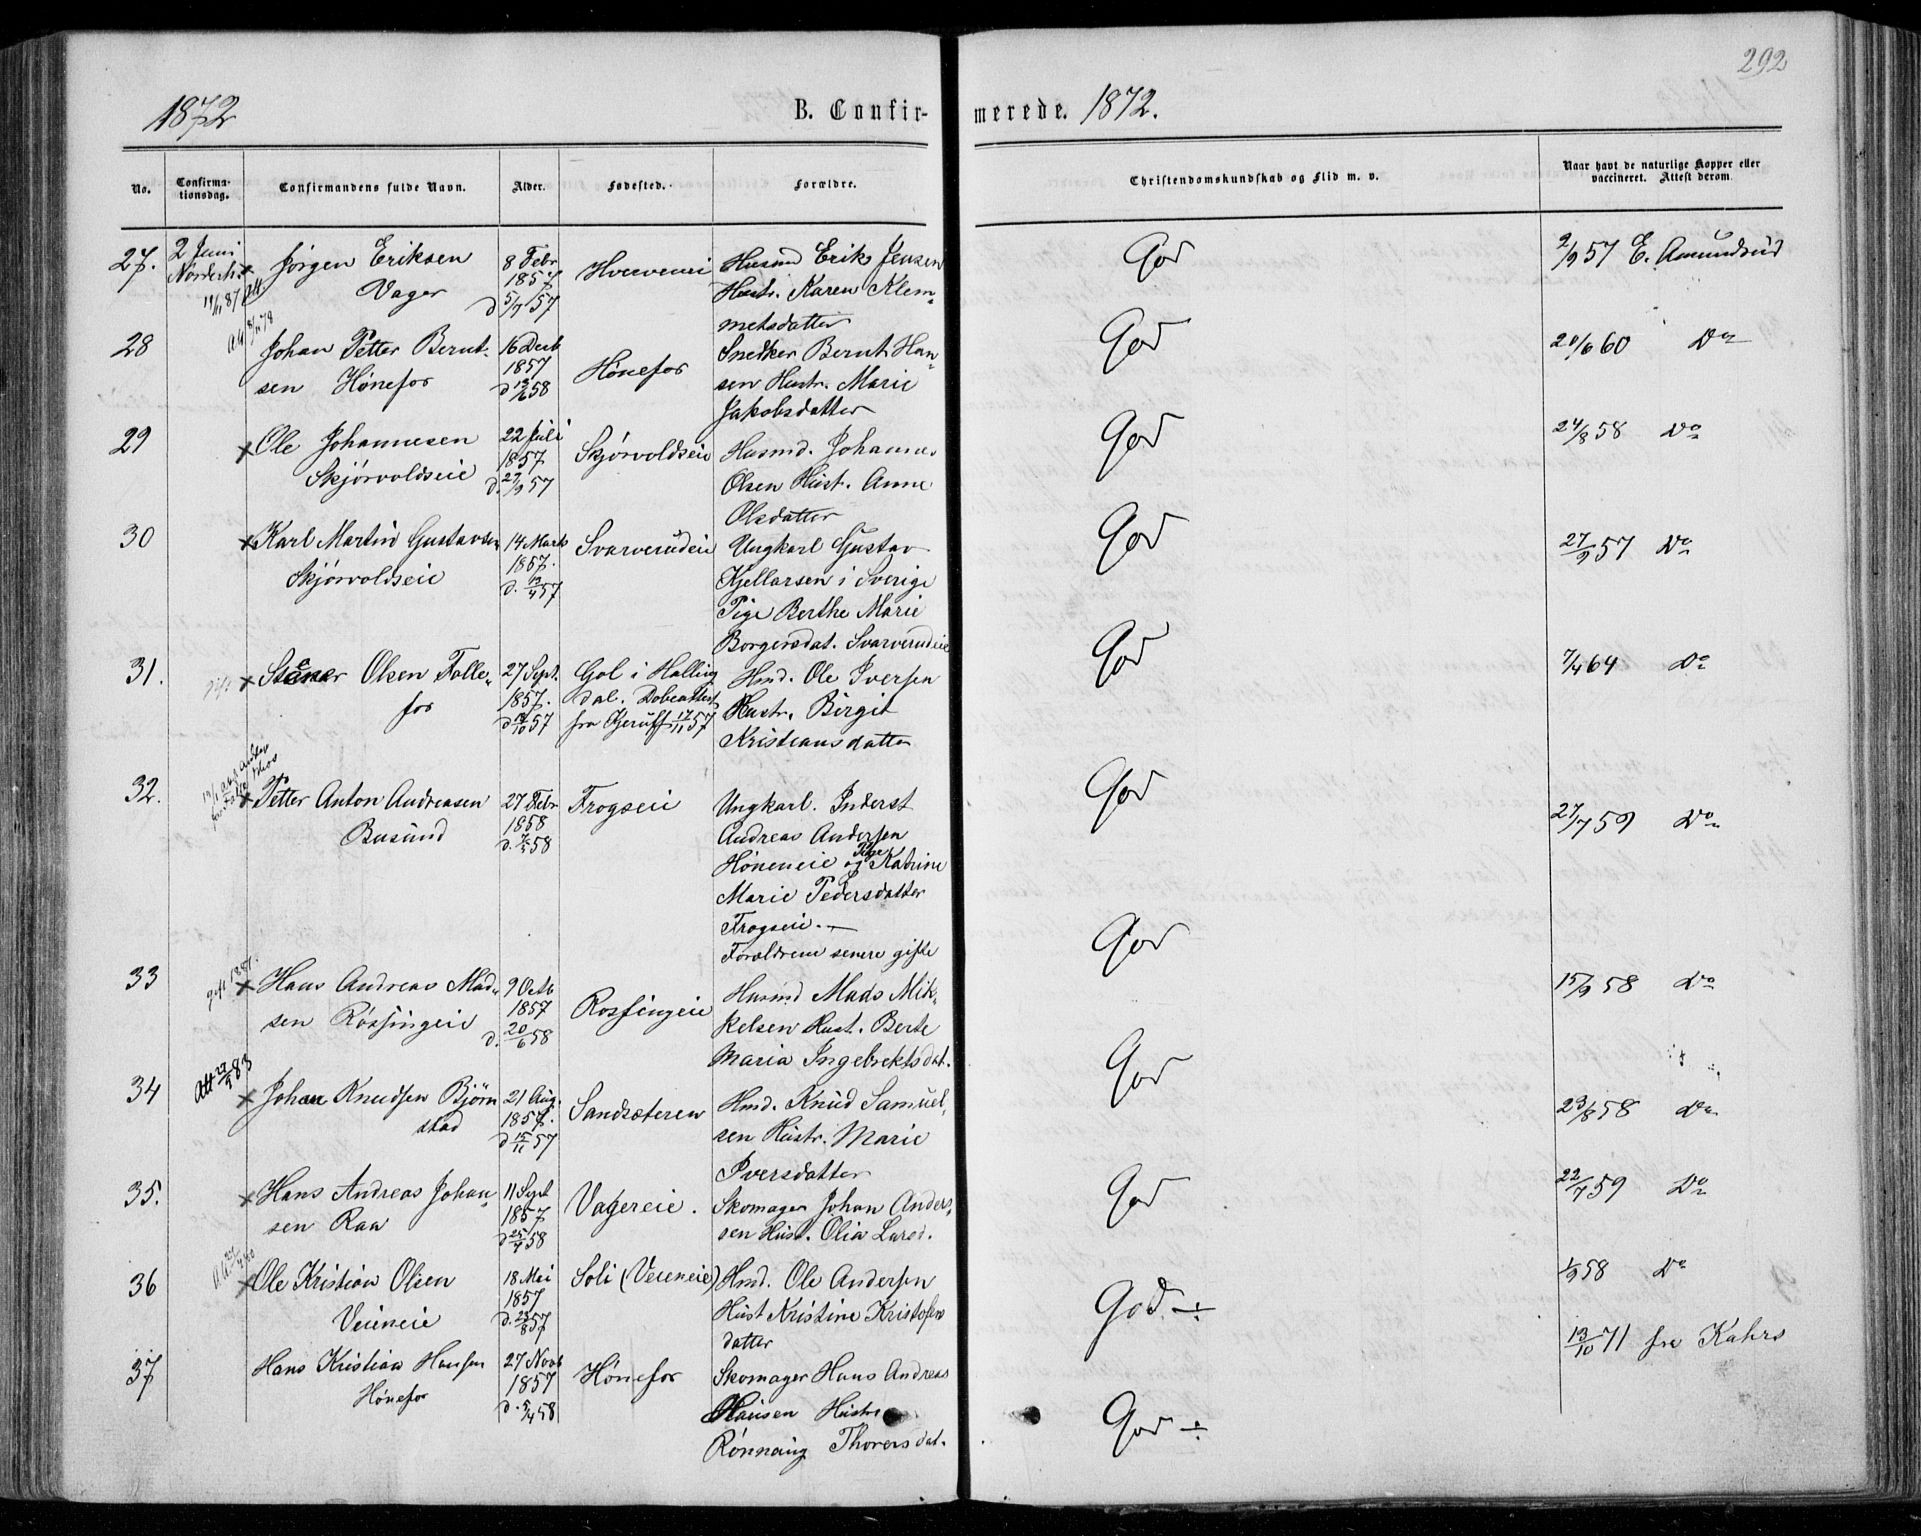 292
1872 B. Confir- merede. 1872.
No. Confirma-tionsdag. Confirmandens fulde Navn. Alder. Fødested. Forældre. Christendomskundskab og Flid m. v. Naar havt de naturlige Kopper eller vaccineret. Attest derom.
27. 2 Juni Jørgen Eriksen 8 Febr Hvervenei Husmd Erik Jensen God 2/9 57 E. Amundrud
Norderh. × Vager 1857 Hustr. Karen Klem-
11/11 87 Att d 5/7 57 metsdatter
28 Att 8/11 78 Johan Petter Bernt- 16 Decb Hønefos Snedker Bernt Han- God 20/6 60 Do
sen Hønefos 1857 sen Hustr. Marie
d 13/6 58 Jakobsdatter
29 × Ole Johannesen 22 Juli Skjørvoldseie Husmd. Johannes God 24/8 58 Do
Skjørvoldseie 1857 Olsen Hust. Anne
d. 27/9 57 Olsdatter
30 × Karl Martin Gustavsen 14 Marts Svarverudeie Ungkarl Gustav God 27/9 57 Do
Skjørvoldseie 1857. Kjellarsen i Sverige
d. 13/4 57 Pige Berthe Marie
Borgersdat. Svarverudeie
31. gift × Steener Olsen Folle- 27 Sept. Gol i Halling Hmd. Ole Iversen God 7/4 64 Do
fos 1857. dal. Dobeattest Hustr. Birgit
d 14/10 57 fra 17/11 57 Kristiansdatter
32. × Petter Anton Andreasen 27 Febr Frogseie Ungkarl. Inderst God 27/7 59 Do
Busund 1858 Andreas Andersen
d. 2/5 58 Høneneie og Pige Katrine
Marie Pedersdatter
Frogseie.—
Forældrene senere gifte
33 gift 1881. × Hans Andreas Mad- 9 Octb Rossingeie Husmd Mads Mik- God 15/9 58 Do
sen Røssingeie 1857 kelsen Hust. Berte
d. 20/6 58 Maria Ingebrektsdat.
34 Att 27/5 83 × Johan Knudsen Bjørn 21 Aug. Sandsæteren Hmd. Knud Samuel- God 23/8 58 Do
stad 1857. sen Hustr. Marie
d 15/11 57 Iversdatter
35. × Hans Andreas Johan 11 Sept Vagereie. Skomager Johan Anders- God 22/7 59 Do
sen Raa 1857 sen Hust. Olia Larsd.
d 25/4 58
36 × Ole Kristian Olsen 18 Mai Soli (Veieneie) Hmd. Ole Andersen God.÷ 1/9 58 Do
Veieneie 1857 Hust Kristine Kristofers
d. 23/8 57 datter
37 Hans Kristian Hansen 27 Novb Hønefos Skomager Hans Andreas God ÷ 13/10 71 fra Kahrs
Hønefos 1857 Hansen Hustr
d. 5/4 58 Rønnaug Thorersdat.